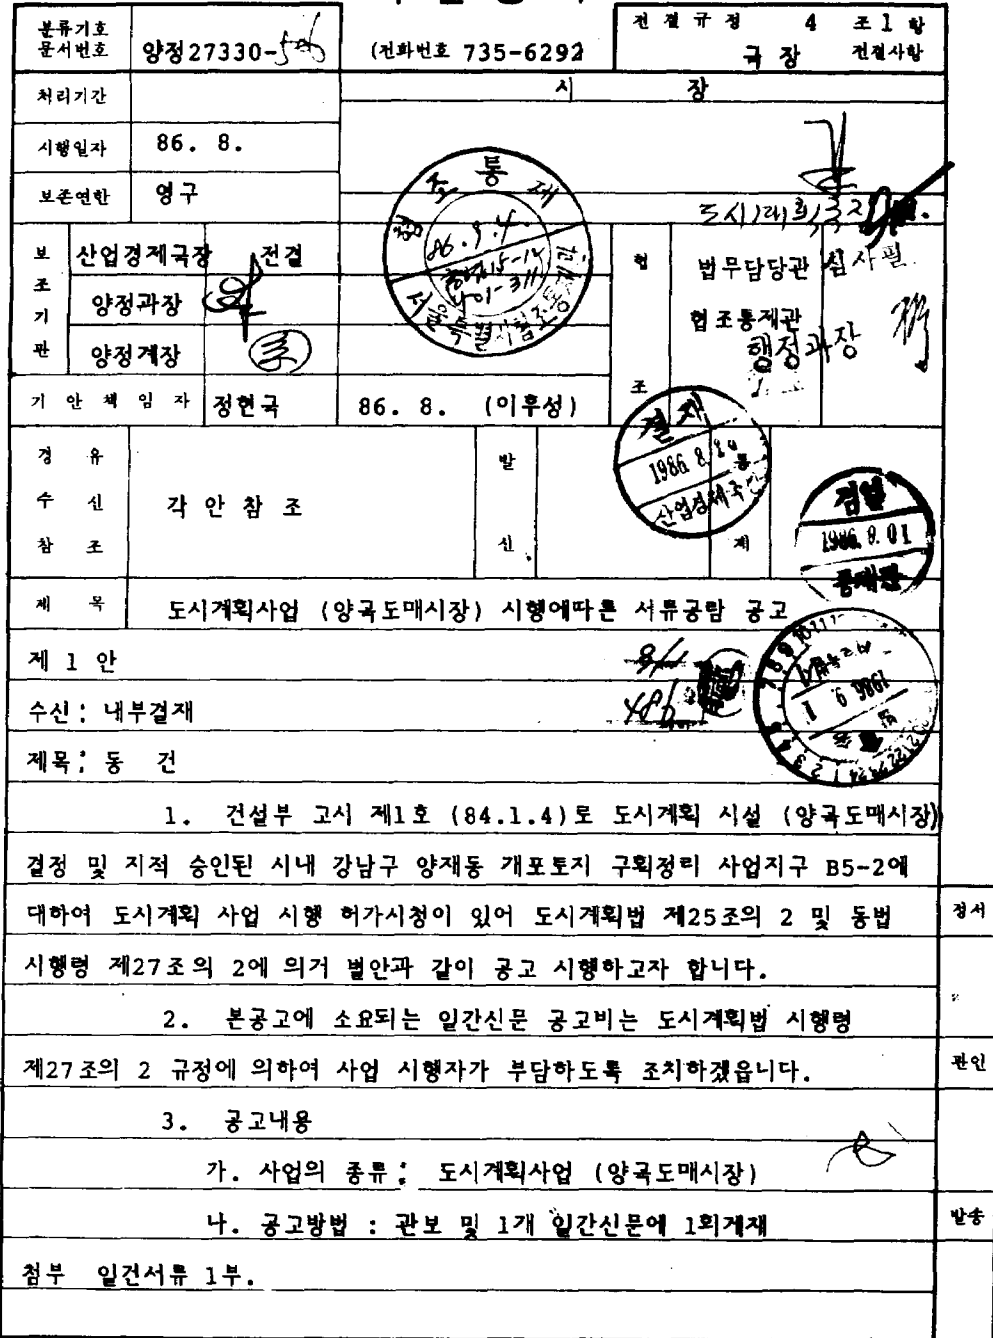 분류기호
문서번호 양정27330-
(전화번호 735-6292
전결규정 4 조 1 항
국장 전결사항
처리기간
시 장
시행일자 86. 8.
보존연한 영구
보조기관
산업경제국장 전결
양정과장
양정계장
협조
법무담당관 심사필
협조통제관
행정과장
기안책임자 정현국 86. 8. (이후성)
경유
수신
참조
각 안 참 조
발신
통제
결재
1986. 8.
산업경제국
검열
1986. 9. 01
통제관
협조통제
86. 9. 4.
제 목 도시계획사업 (양곡도매시장) 시행에따른 서류공람 공고
1986. 9. 1
제 1 안
수신: 내부결재
제목: 동 건
1. 건설부 고시 제1호 (84.1.4)로 도시계획 시설 (양곡도매시장)
결정 및 지적 승인된 시내 강남구 양재동 개포토지 구획정리 사업지구 B5-2에
대하여 도시계획 사업 시행 허가시청이 있어 도시계획법 제25조의 2 및 동법
시행령 제27조의 2에 의거 별안과 같이 공고 시행하고자 합니다.
2. 본공고에 소요되는 일간신문 공고비는 도시계획법 시행령
제27조의 2 규정에 의하여 사업 시행자가 부담하도록 조치하겠읍니다.
3. 공고내용
가. 사업의 종류: 도시계획사업 (양곡도매시장)
나. 공고방법 : 관보 및 1개 일간신문에 1회게재
첨부 일건서류 1부.
정서
관인
발송